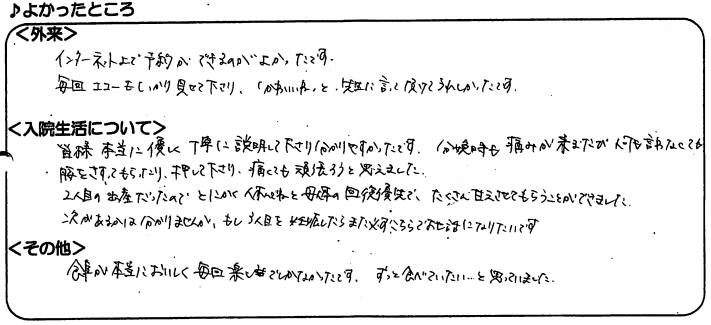 ♪よかったところ
<外来>
インターネット上で予約ができるのがよかったです。
毎回エコーをしっかり見せて下さり、「かわいいね」と先生に言って頂けてうれしかったです。
<入院生活について>
皆様本当に優しく丁寧に説明して下さり分かりやすかったです。分娩時も痛みが来た時何も言わなくても
腰をさすってもらったり、押して下さり、痛くても頑張ろうと思えました。
2人目の出産だったのでとにかく休むねと母体の回復優先で、たくさん甘えさせてもらうことができました。
次があるかは分かりませんが、もし3人目を妊娠したらまた必ずこちらでお世話になりたいです
<その他>
食事が本当においしく毎回楽しみでしかなかったです。ずっと食べていたい…と思っていました。